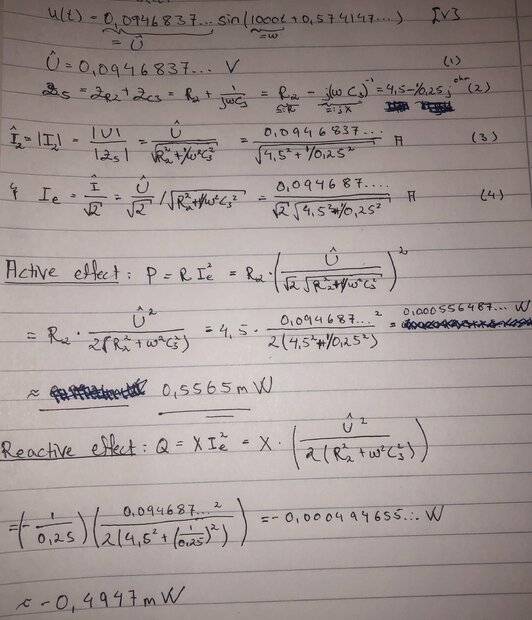 u(t) = 0,0946837... sin(1000t + 0,574147...) Iv3
= Û =ω
Û = 0,0946837... V (1)
Z_S = Z_R2 + Z_C3 = R_2 + 1/(jωC_3) = R_2 - j(ωC_3)^-1 = 4,5 - 1/0,25 j ohm (2)
=:R =:jX
Î_2 = |I_2| = |U|/|Z_S| = Û/√(R_2^2 + 1/ω^2C_3^2) = 0,0946837.../√(4,5^2 + 1/0,25^2) A (3)
I_e = Î/√2 = Û/√2 /√(R_2^2 + 1/ω^2C_3^2) = 0,094687.../(√2 √(4,5^2 + 1/0,25^2)) A (4)
Active effect: P = R I_e^2 = R_2 · (Û/(√2 √(R_2^2 + 1/ω^2C_3^2)))^2
= R_2 · Û^2/(2(R_2^2 + ω^2C_3^2)) = 4,5 · 0,094687...^2/(2(4,5^2 + 1/0,25^2)) = 0,000556487... W
≈ 0,5565 mW
Reactive effect: Q = X I_e^2 = X · (Û^2/(2(R_2^2 + ω^2C_3^2)))
= (-1/0,25) (0,094687...^2/(2(4,5^2 + (1/0,25)^2))) = -0,000494655... W
≈ -0,4947 mW